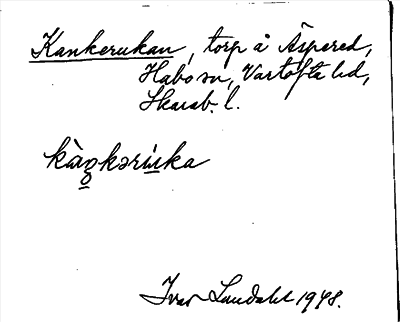 Kankerukan, torp å Äspered,
Habo sn, Vartofta hd,
Skarab. l.
kàŋkəru̲ka
Ivar Lundahl 1948.